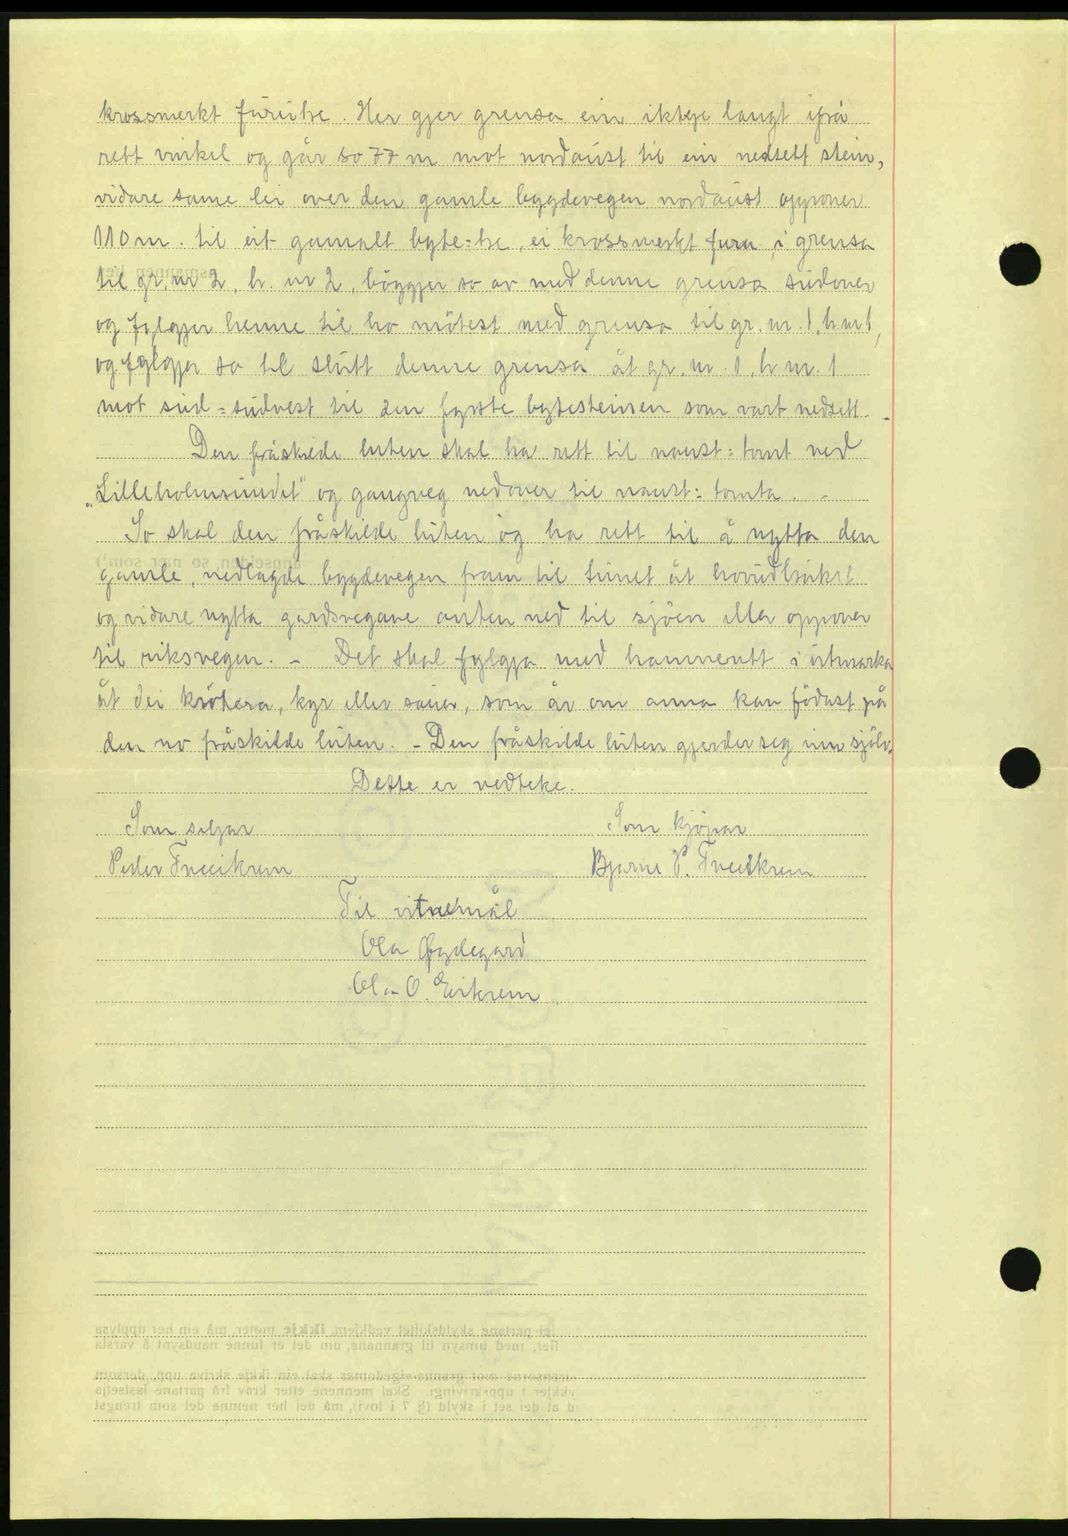 krossmerkt furutre. Her gjer grensa ein ikkje langt ifrå
rett vinkel og går so 77 m mot nordaust til ein nedsett stein,
vidare same lei over den gamle bygdevegen nordaust oppover
110 m. til eit gamalt byte-tre, ei krossmerkt furu, i grensa
til gr. nr 2, b. nr 2, böygjer so av med denne grensa sudover
og fylgjer henne til ho mötest med grensa til gr. nr. 1, b nr 1,
og fylgjer so til slutt denne grensa åt gr. nr. 1 b nr. 1
mot sud-sudvest til den fyrste bytesteinen som vart nedsett. -
Den fråskilde luten skal ha rett til naust-tomt ved
„Lilleholmsundet" og gangveg nedover til naust-tomta. -
So skal den fråskilde luten og ha rett til å nytta den
gamle, nedlagde bygdevegen fram til tunet åt hovudbruket
og vidare nytta gardsvegane anten ned til sjöen eller oppover
til riksvegen. - Det skal fylgja med hamnerett i utmarka
åt dei krötera, kyr eller sauer, som år om anna kan födast på
den no fråskilde luten. - Den fråskilde luten gjerder seg inn sjölv.
Dette er vedteke.
Som seljar Som kjöpar
Peder Treeikrem Bjarne P. Treeikrem
Til vitnemål
Ola Øygdegard
Ola O. Eikrem.